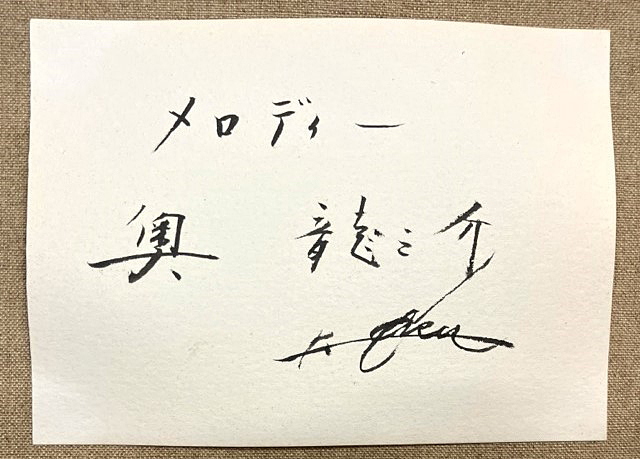 メロディー
奥 龍之介